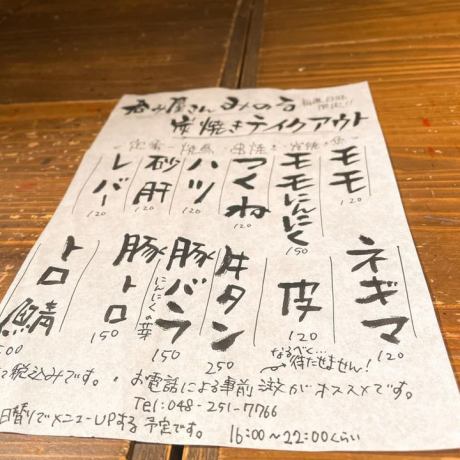 呑み屋さん まめの台
炭焼きテイクアウト
モモ 120
モモにんにく 150
つくね 120
ハツ 120
砂肝 120
レバー 120
ネギマ 120
皮 120
牛タン 250
豚バラ にんにくの芽 150
豚トロ 150
トロ鯖 500
なるべく…待たせません!
税込みです。・お電話による事前注文がオススメです。
Tel:048-251-7766
日替りでメニューUPする予定です。 16:00〜22:00くらい